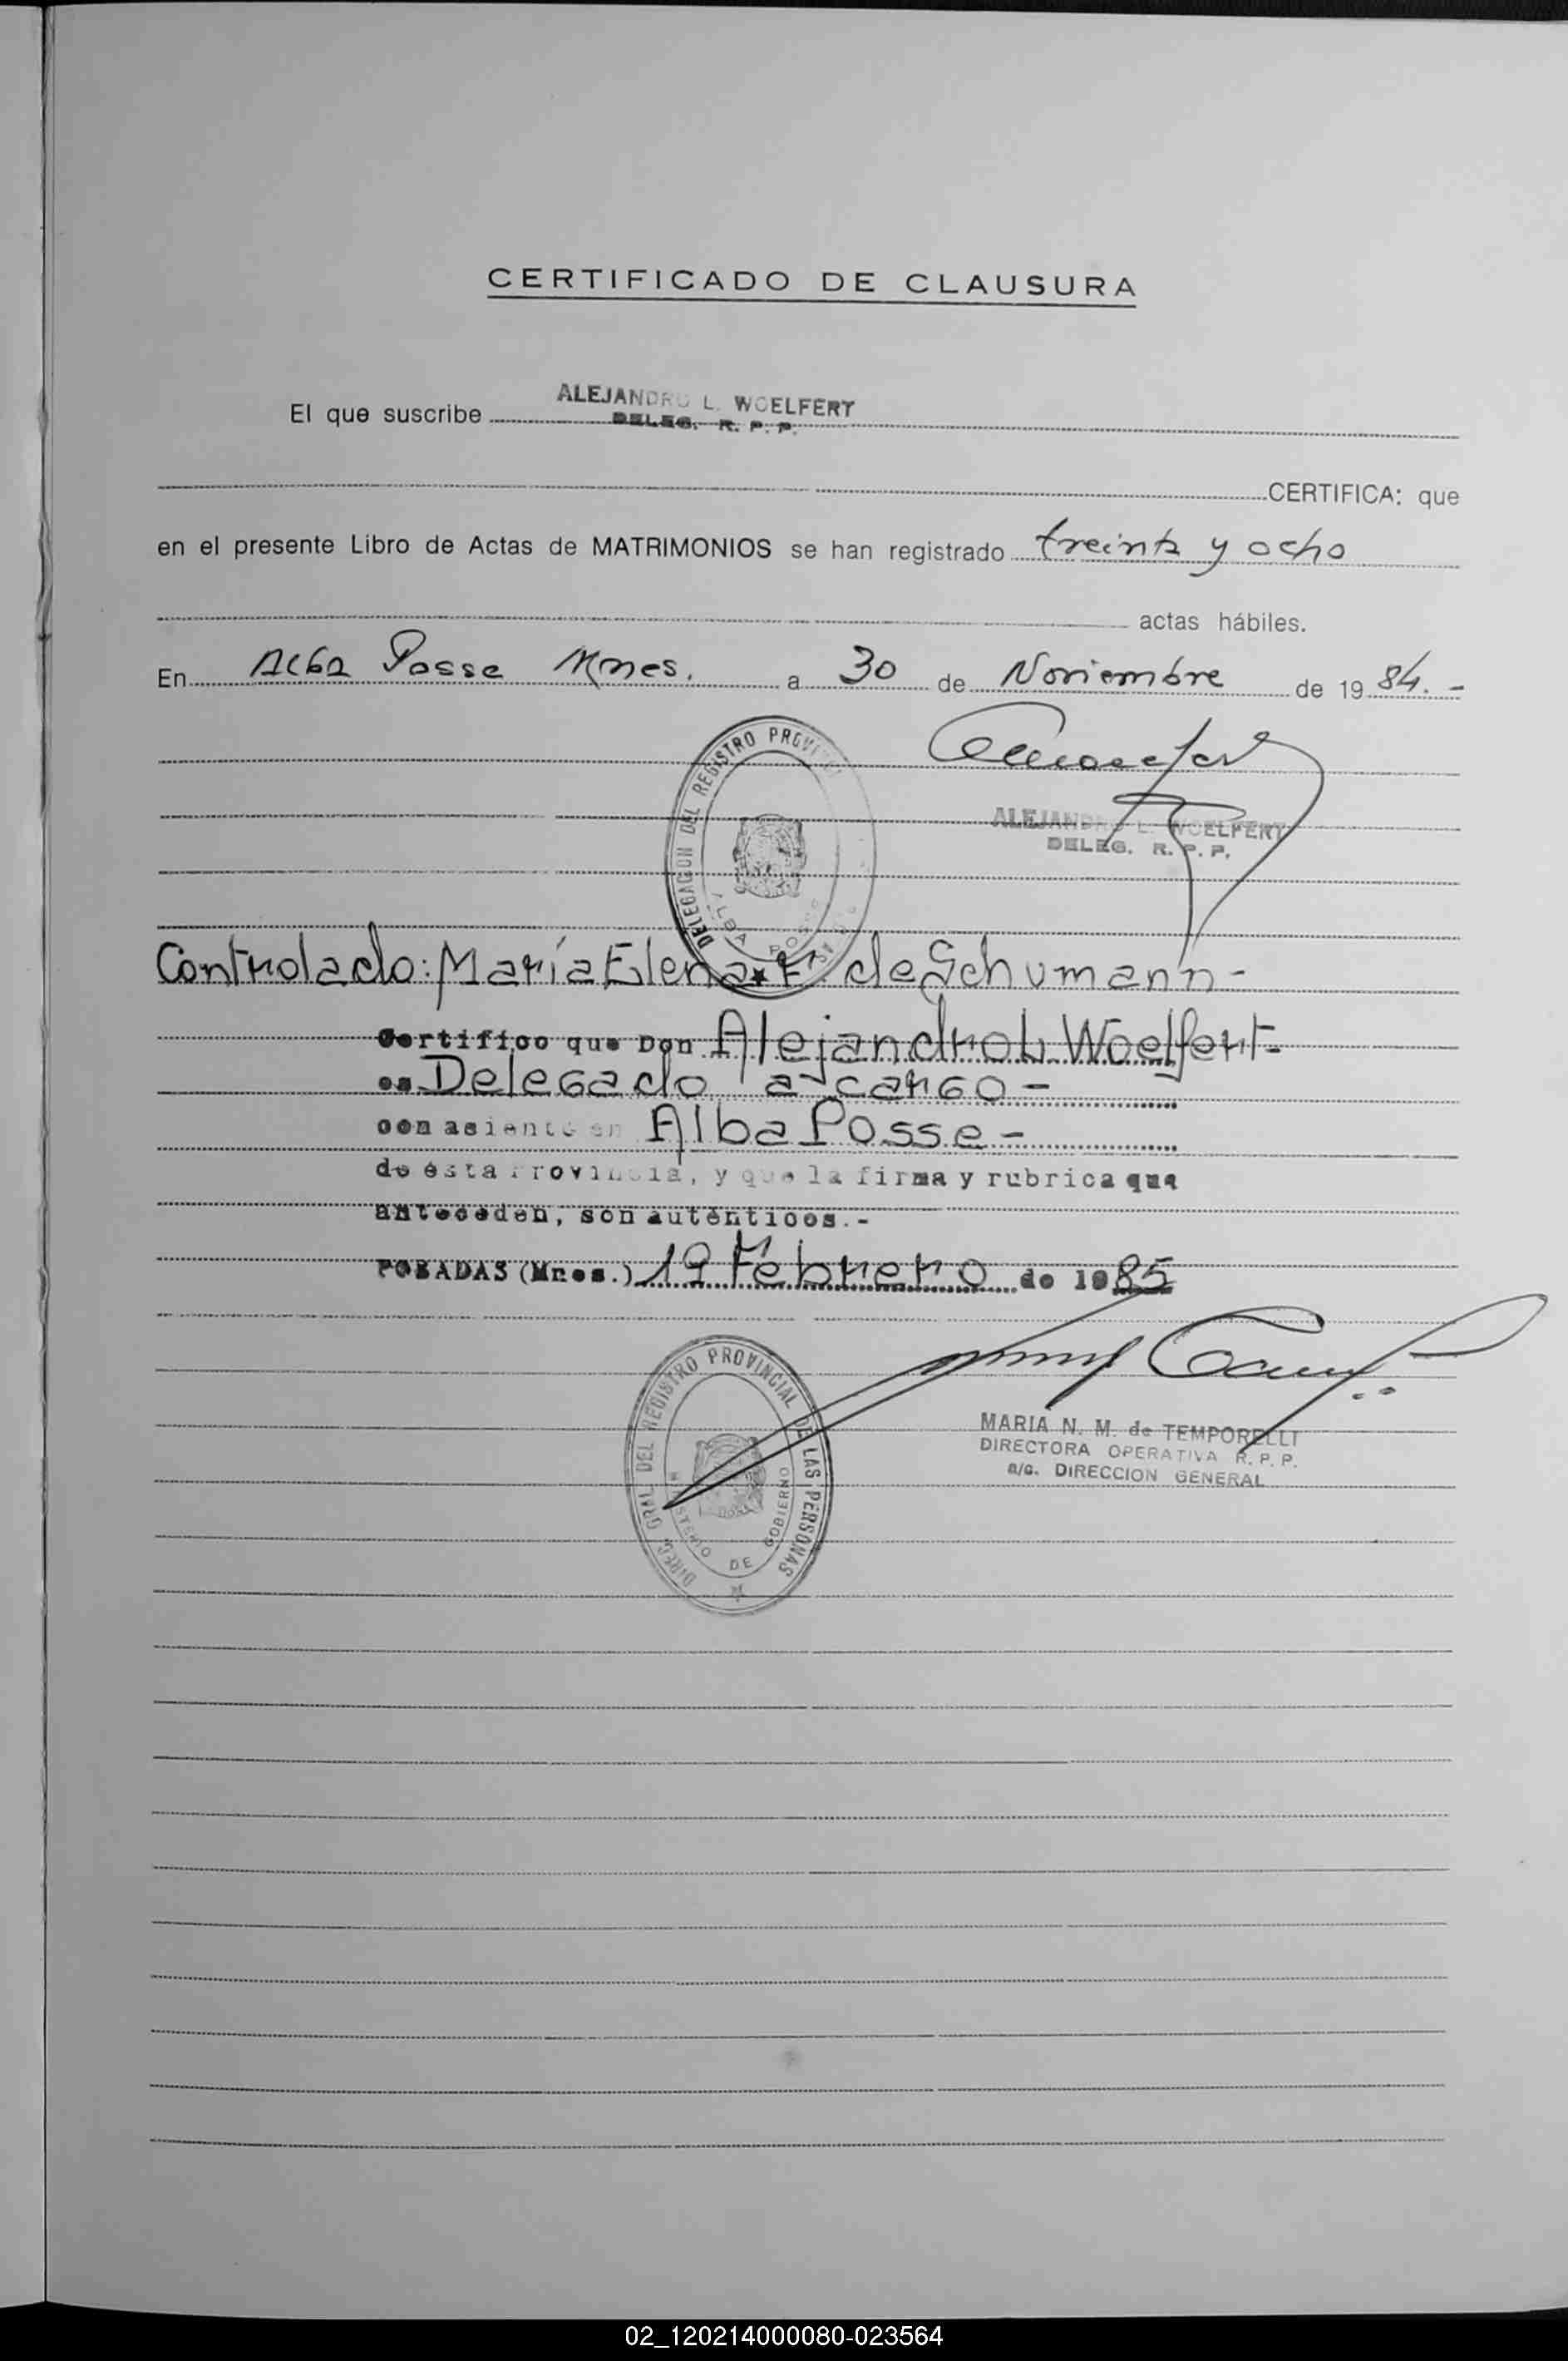 CERTIFICADO DE CLAUSURA
El que suscribe ALEJANDRO L. WOELFERT
DELEG. R. P. P.
CERTIFICA: que
en el presente Libro de Actas de MATRIMONIOS se han registrado treinta y ocho
actas hábiles.
En Alba Posse Mnes. a 30 de Noviembre de 19 84.-
DELEGACION DEL REGISTRO PROVINCIAL
ALBA POSSE
ALEJANDRO L. WOELFERT
DELEG. R. P. P.
Controlado: María Elena F. de Schumann-
Certifico que Don Alejandro L Woelfert-
es Delegado a cargo-
con asiento en Alba Posse-
de ésta Provincia, y que la firma y rubrica que
anteceden, son auténticos.-
POSADAS (Mnes.) 19 Febrero de 1985
DIREC. GRAL. DEL REGISTRO PROVINCIAL DE LAS PERSONAS
MINISTERIO DE GOBIERNO
MARIA N. M. de TEMPORELLI
DIRECTORA OPERATIVA R. P. P.
a/c. DIRECCION GENERAL
02_120214000080-023564